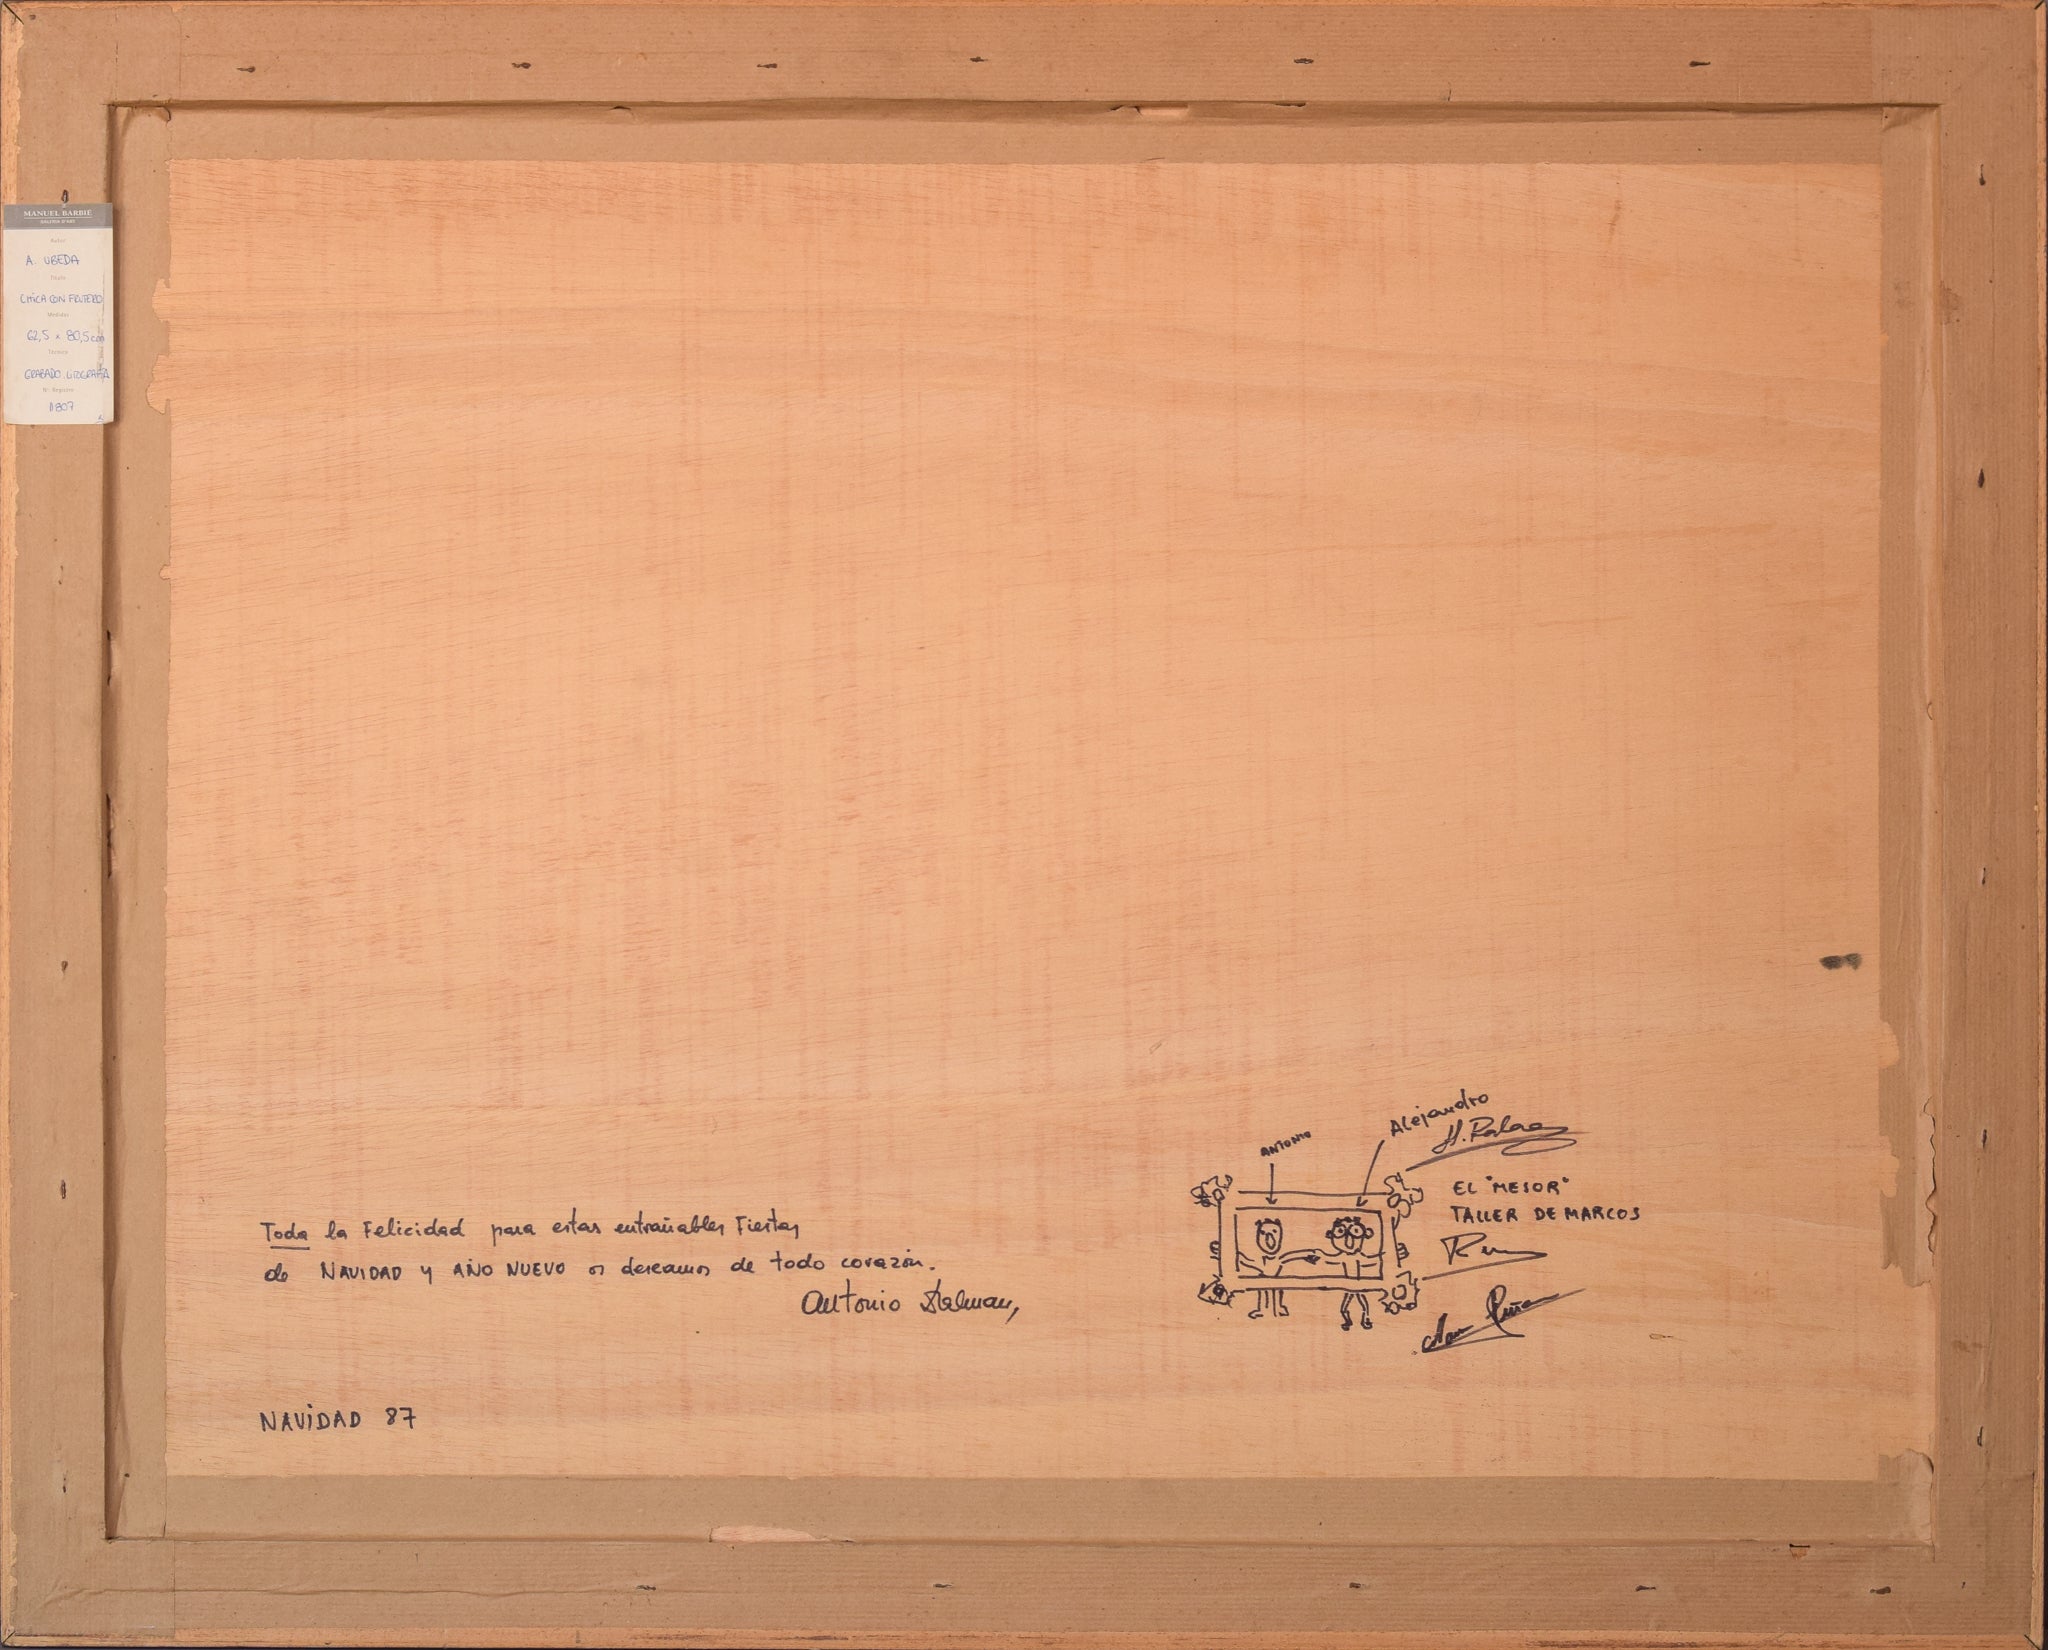 MANUEL BARBIÉ
GALERIA D'ART
Autor
A. UBEDA
Título
CHICA CON FRUTERO
Medidas
62,5 x 80,5 cm
Técnica
GRABADO. LITOGRAFIA
Nº Registro
11807
Alejandro
ANTONIO
EL "MEJOR"
TALLER DE MARCOS
Toda la Felicidad para estas entrañables Fiestas
de NAVIDAD y AÑO NUEVO os deseamos de todo corazón.
Antonio
NAVIDAD 87